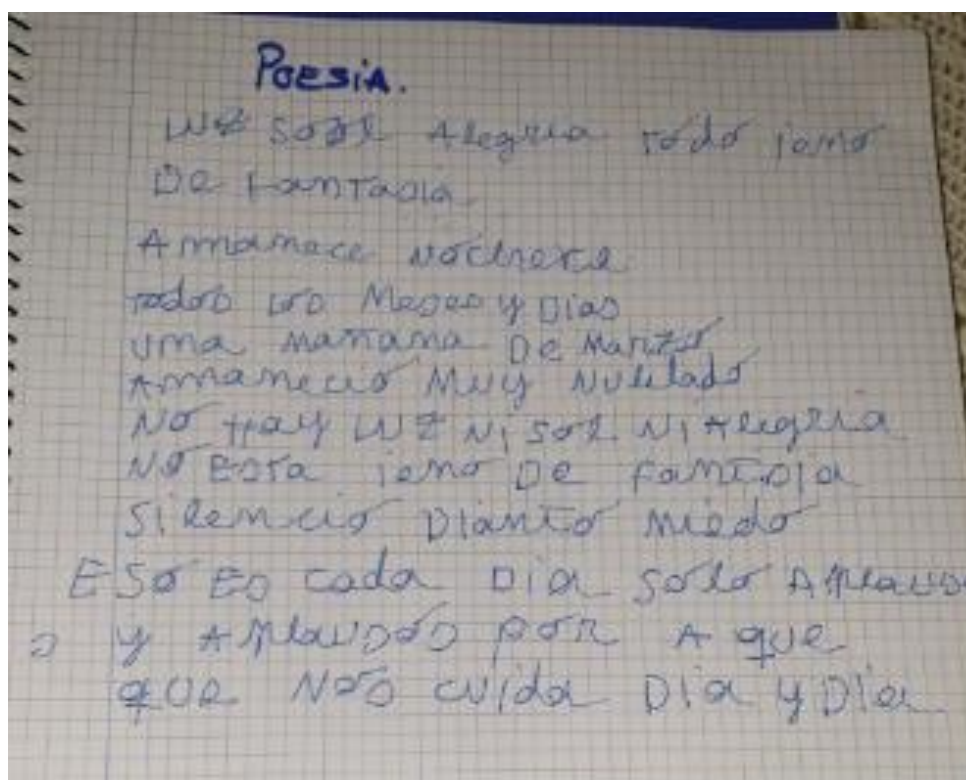 Poesia.
luz sol Alegria todo ieno
De fantasia
Ammanece nochexe
todos los Meses y Dias
una mañana De Marzo
Ammanecio Muy Nublado
No Hay luz Ni sol Ni Alegria
No Esta ieno De fantsia
Silencio llanto miedo
ESo Es cada Dia solo Aplauso
s y Aplausos por A que
que Nos cuida Dia y Dia